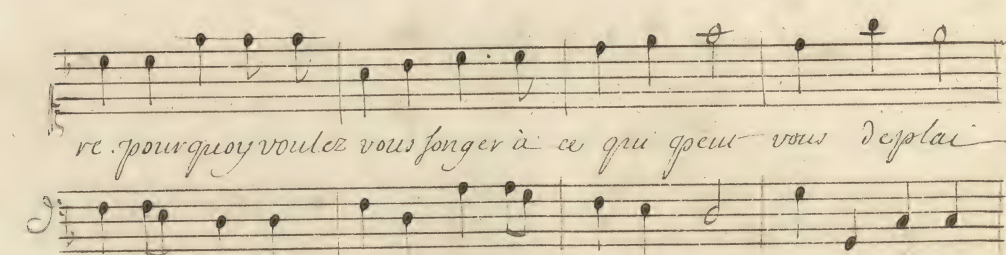 re. pourquoy voulez vous songer à ce qui peut vous deplai